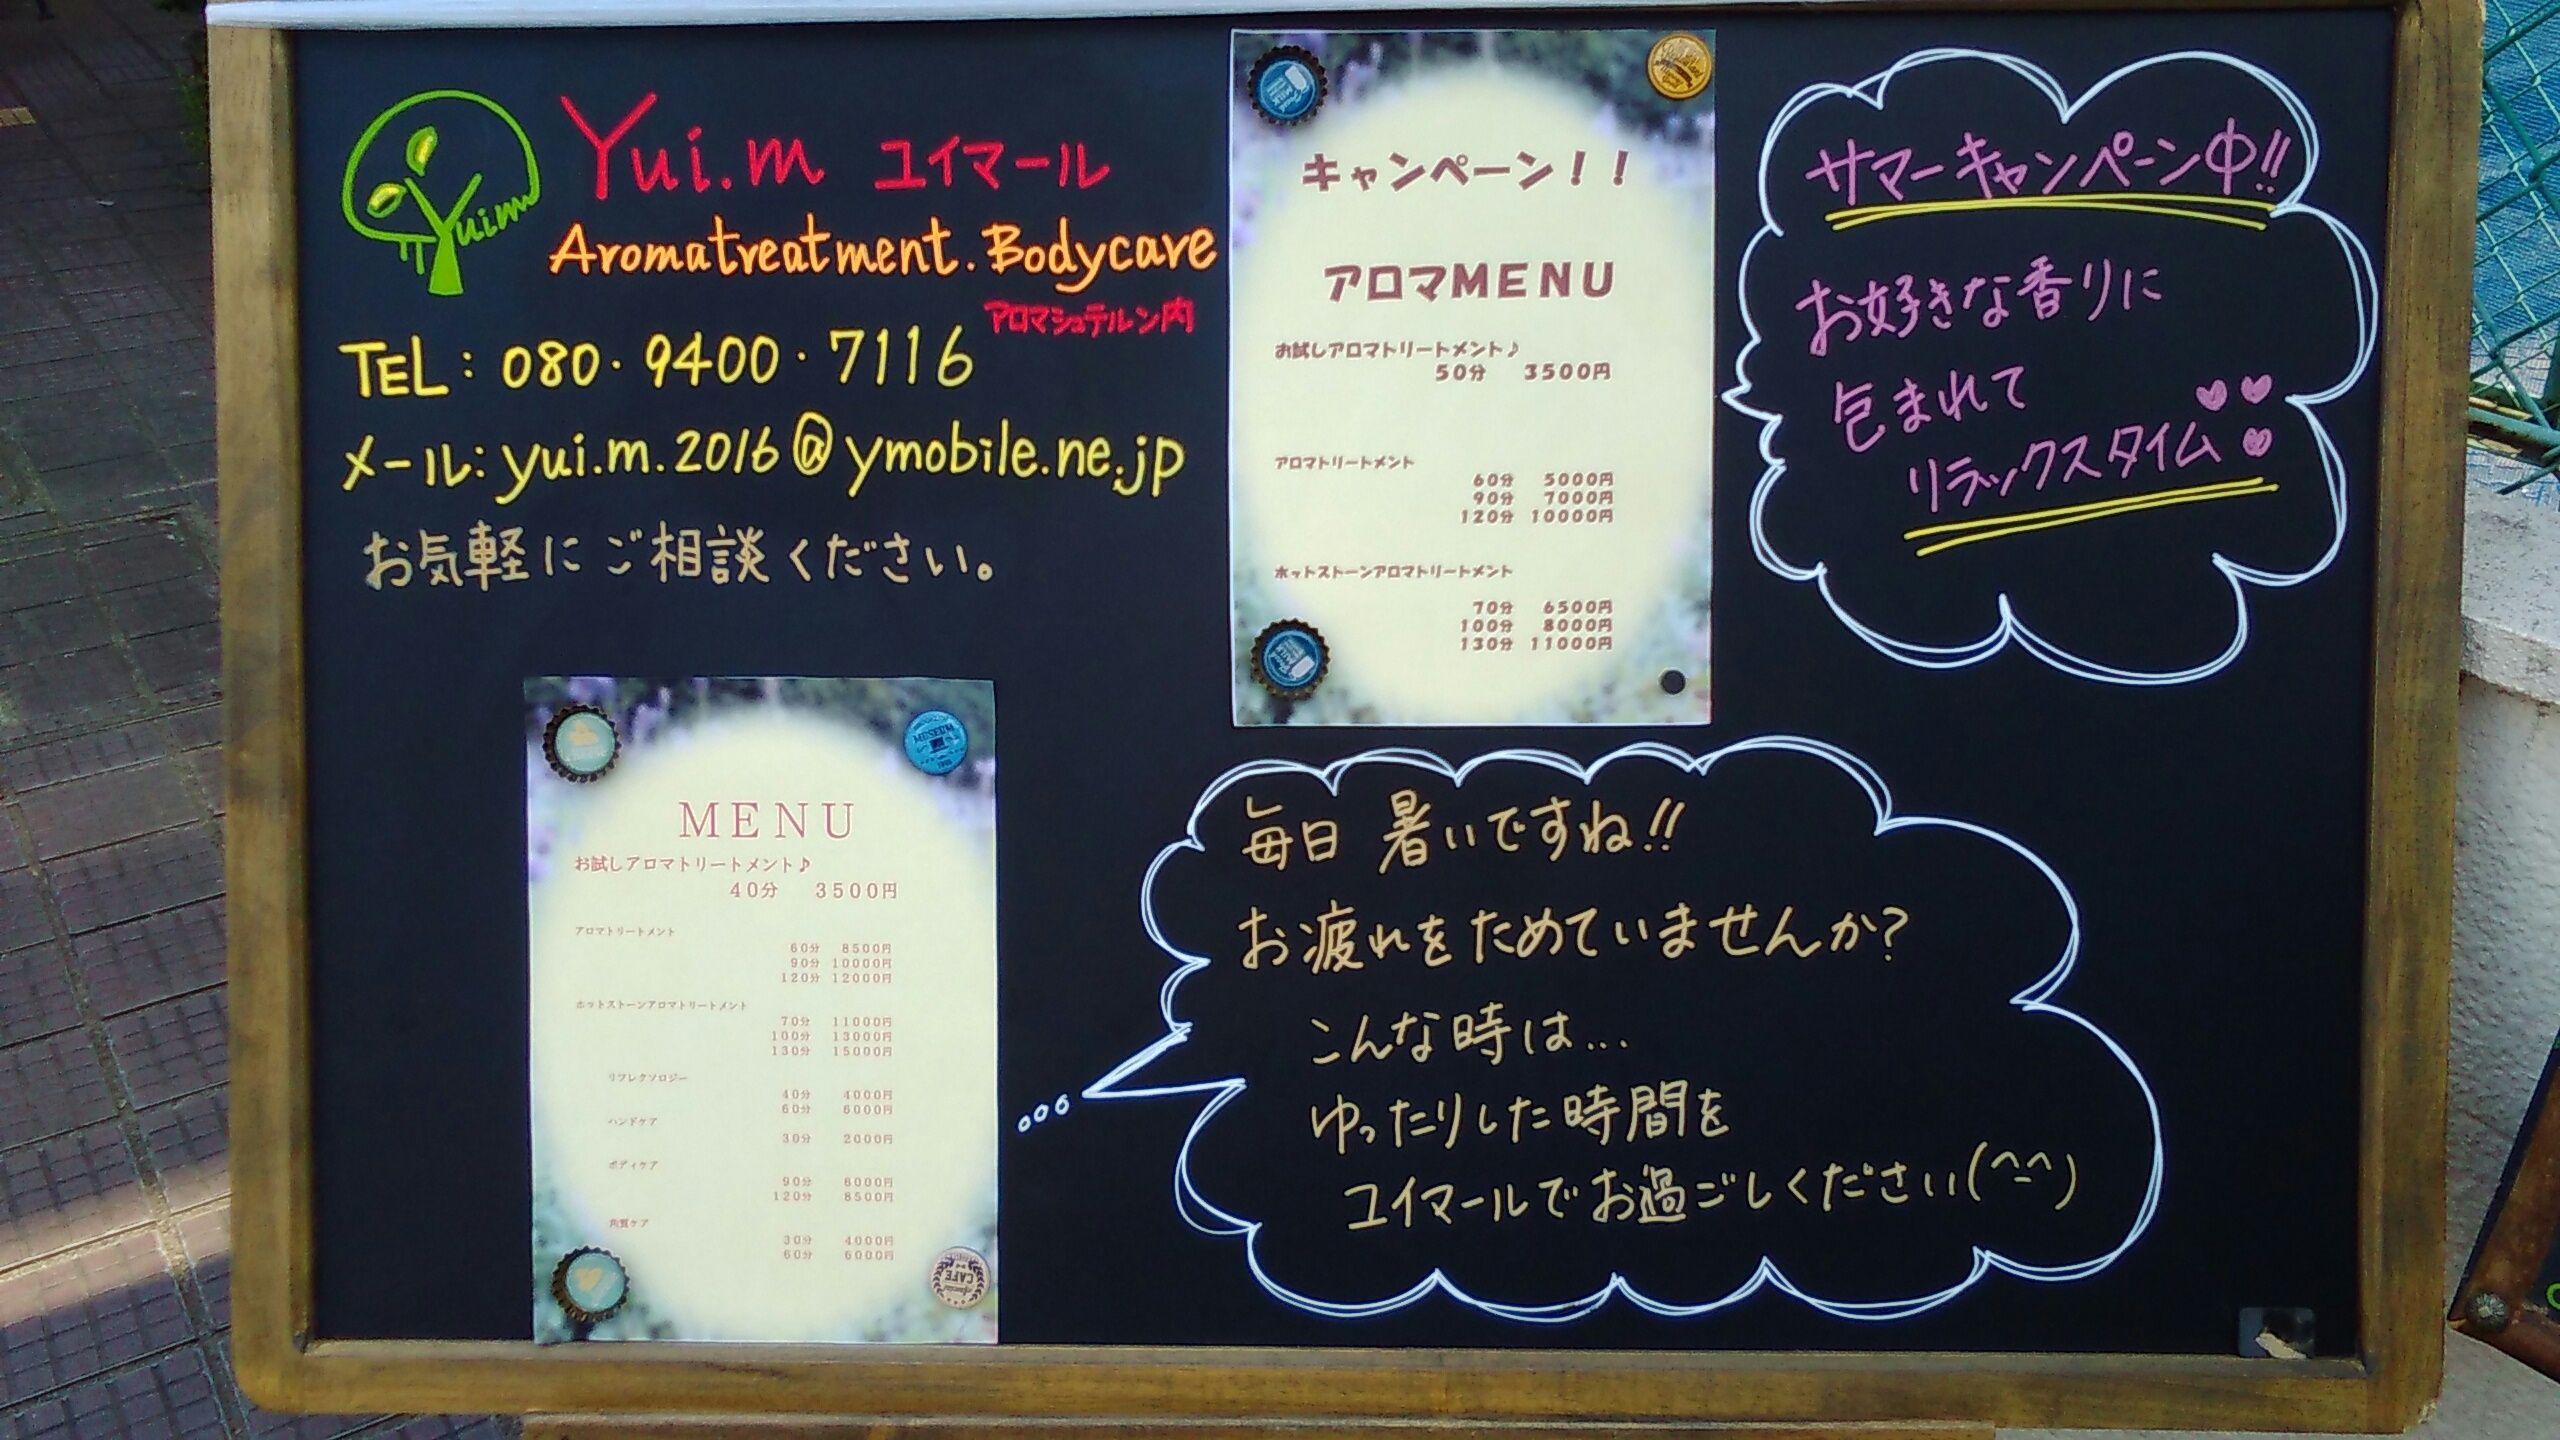 Yui.m
Yui.m ユイマール
Aromatreatment. Bodycare
アロマシュテルン内
TEL: 080・9400・7116
メール: yui.m.2016@ymobile.ne.jp
お気軽にご相談ください。
キャンペーン！！
アロマMENU
お試しアロマトリートメント♪
50分 3500円
アロマトリートメント
60分 5000円
90分 7000円
120分 10000円
ホットストーンアロマトリートメント
70分 6500円
100分 8000円
130分 11000円
サマーキャンペーン中!!
お好きな香りに
包まれて
リラックスタイム
MENU
お試しアロマトリートメント♪
40分 3500円
アロマトリートメント
60分 8500円
90分 10000円
120分 12000円
ホットストーンアロマトリートメント
70分 11000円
100分 13000円
130分 15000円
リフレクソロジー
40分 4000円
60分 6000円
ハンドケア
30分 2000円
ボディケア
90分 6000円
120分 8500円
角質ケア
30分 4000円
60分 6000円
MUSEUM
CAFE
毎日 暑いですね!!
お疲れをためていませんか?
こんな時は...
ゆったりした時間を
ユイマールでお過ごしください(^-^)